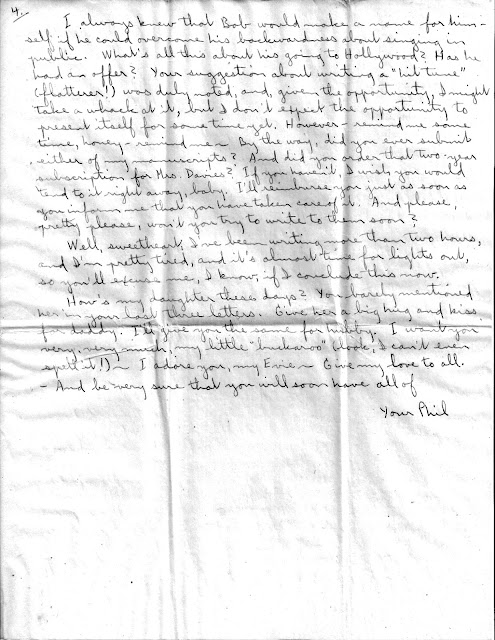 4.
I always knew that Bob would make a name for him-
self if he could overcome his backwardness about singing in
public. What's all this about his going to Hollywood? Has he
had an offer? Your suggestion about writing a "hit tune"
(flatterer!) was duly noted, and, given the opportunity, I might
take a whack at it, but I don't expect the opportunity to
present itself for some time yet. However - remind me some
time, honey - remind me - By the way, did you ever submit
either of my manuscripts? And did you order that two-year
subscription for Mrs. Davies? If you haven't, I wish you would
tend to it right away, baby, I'll reimburse you just as soon as
you inform me that you have taken care of it. And please,
pretty please, won't you try to write to them soon?
Well, sweetheart, I've been writing more than two hours,
and I'm pretty tired, and it's almost time for lights out,
so you'll excuse me, I know, if I conclude this now.
How's my daughter these days? You barely mentioned
her in your last three letters. Give her a big hug and kiss
for daddy. I'll give you the same for hubby. I want you
very, very much, my little "buckaroo" (look, I can't even
spell it!) - I adore you, my Evie - Give my love to all.
- And be very sure that you will soon have all of
Your Phil